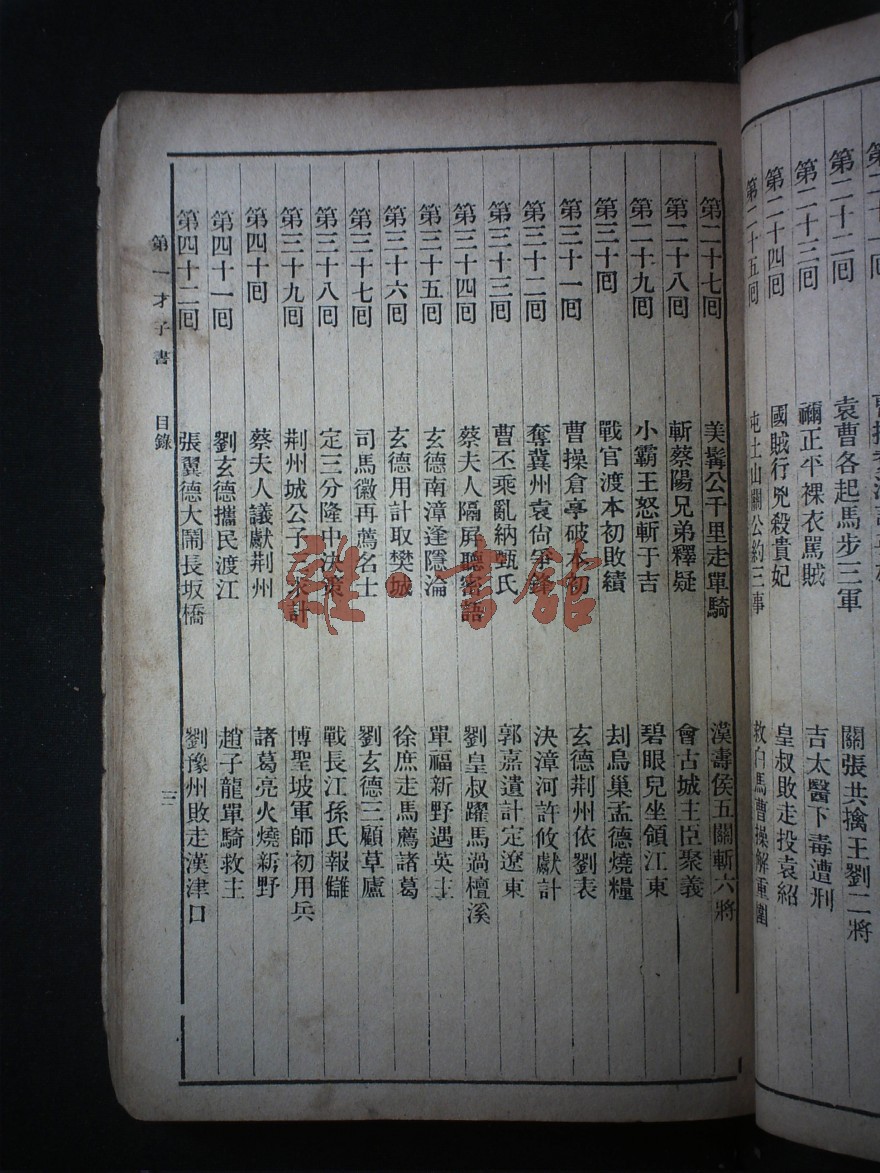 第二十二回 袁曹各起馬步三軍 關張共擒王劉二將
第二十三回 禰正平裸衣罵賊 吉太醫下毒遭刑
第二十四回 國賊行兇殺貴妃 皇叔敗走投袁紹
第二十五回 屯土山關公約三事 救白馬曹操解重圍
第二十七回 美髯公千里走單騎 漢壽侯五關斬六將
第二十八回 斬蔡陽兄弟釋疑 會古城主臣聚義
第二十九回 小霸王怒斬于吉 碧眼兒坐領江東
第三十回 戰官渡本初敗績 刦烏巢孟德燒糧
第三十一回 曹操倉亭破本初 玄德荆州依劉表
第三十二回 奪冀州袁尙爭鋒 決漳河許攸獻計
第三十三回 曹丕乘亂納甄氏 郭嘉遺計定遼東
第三十四回 蔡夫人隔屏聽密語 劉皇叔躍馬過檀溪
第三十五回 玄德南漳逢隱淪 單福新野遇英主
第三十六回 玄德用計取樊城 徐庶走馬薦諸葛
第三十七回 司馬徽再薦名士 劉玄德三顧草廬
第三十八回 定三分隆中決策 戰長江孫氏報讎
第三十九回 荆州城公子求計 博望坡軍師初用兵
第四十回 蔡夫人議獻荆州 諸葛亮火燒新野
第四十一回 劉玄德攜民渡江 趙子龍單騎救主
第四十二回 張翼德大鬧長坂橋 劉豫州敗走漢津口
第一才子書 目錄 三
雜·书館